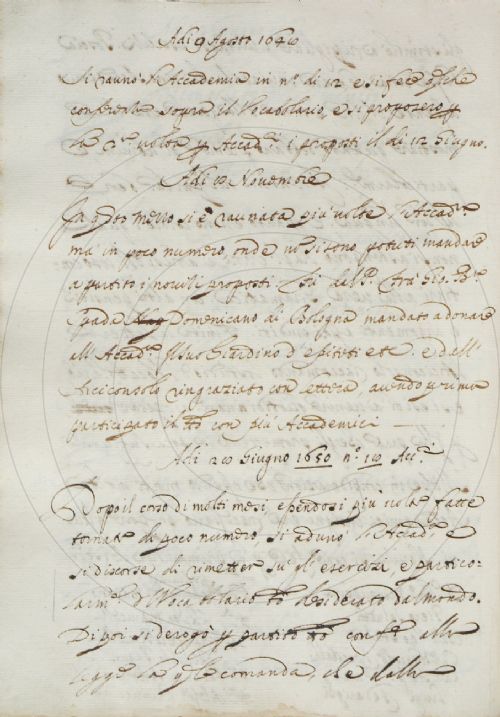 Adi 9 Agosto 1649
Si raunò l'Accademia in nº. di 12 e si fece qlche
conferenza sopra il Vocabolario, e si proposero p
la 2ª. volta p Accad.i i proposti il di 12 Giugno.
Adi 10 Novembre
In qsto mezzo si è raunata più volte l'Accad.ª
ma in poco numero, onde nō si sono potuti mandare
a partito i novelli proposti. Il P. Frà Gio. Bª.
Spada Domenicano di Bologna mandato a donare
all'Accad.ª il suo Giardino d'epiteti etc. e dall'
Arciconsolo ringraziato con lettera, avendo prima
participato il tto con più Accademici
Adi 20 Giugno 1650 nº. 10 Acc.i
Dopo il corso di molti mesi, essendosi più volte fatte
tornate di poco numero, si adunò l'Accad.ª e
si discorse di rimetter sù gl'esercizi e partico-
larm.e il Vocabolario tto desiderato dal mondo.
Di poi si derogò p partito tto alla
legge la qle comanda, che dalla